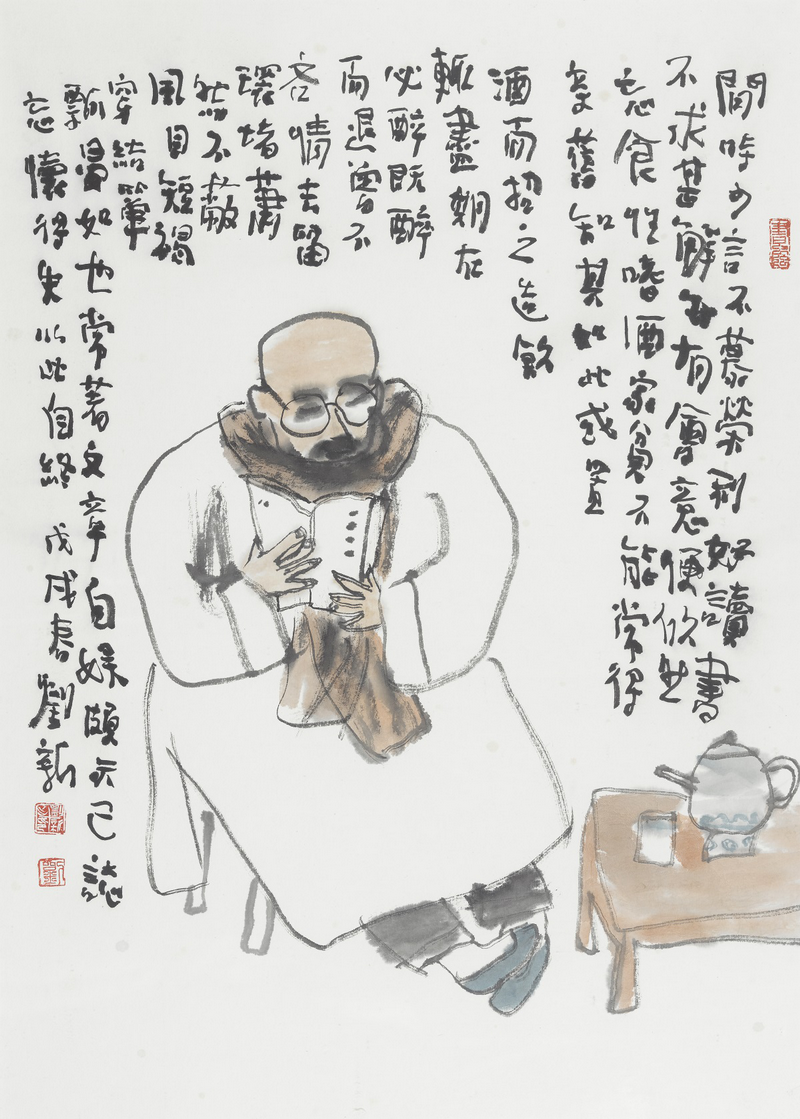 閒時少言不慕榮利好讀書
不求甚解每有會意便欣然
忘食性嗜酒家貧不能常得
亲舊知其如此或置
酒而招之造飲
輒盡期在
必醉既醉
而退曾不
吝情去留
環堵蕭
然不蔽
風日短褐
穿結簞
瓢晏如也常著文章自娛頗示己誌
忘懷得失以此自終 戊戌春劉新